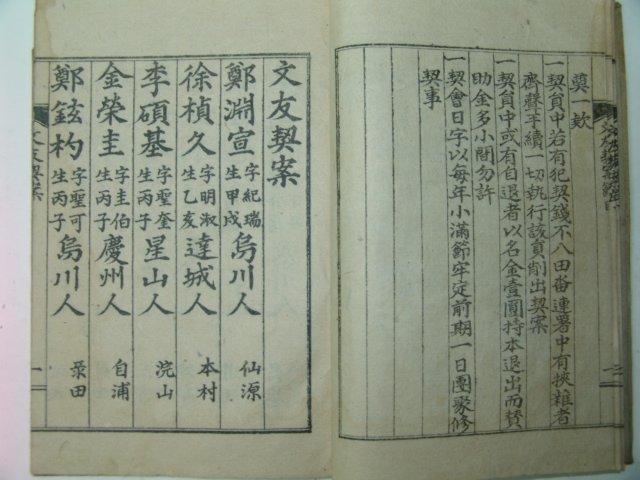 奠一欵
一契員中若有犯契錢不入田畓連署中有挾雜者
齊聲手續一切執行該員削出契案
一契員中或有自退者以名金壹圓持本退出而賛
助金多小間勿許
一契會日字以每年小滿節牢定前期一日團聚修
契事
三
文友契案
鄭淵宣 字紀瑞 生甲戌 烏川人 仙源
徐楨久 字明淑 生乙亥 達城人 本村
李碩基 字聖奎 生丙子 星山人 浣山
金榮圭 字圭伯 生丙子 慶州人 自浦
鄭鉉杓 字聖可 生丙子 烏川人 泵田
文友契案
一